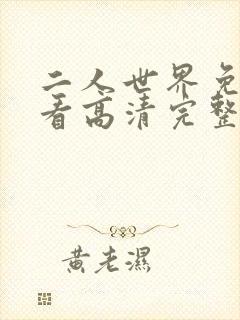 二人世界免
看高清完整
黄老濕